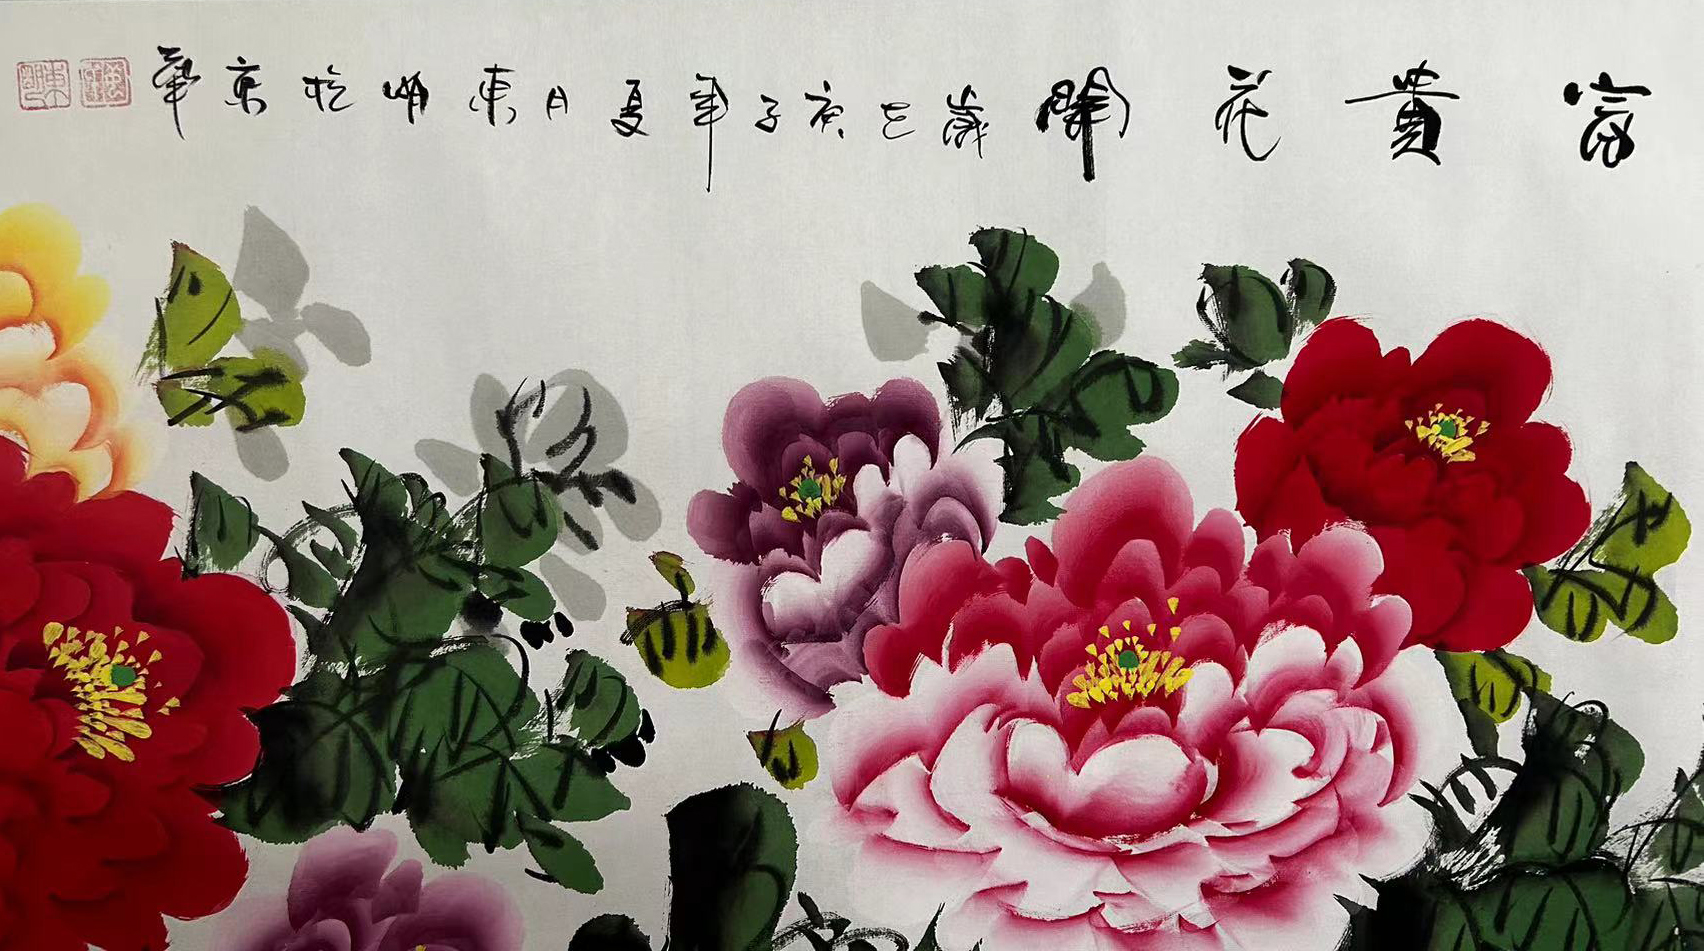 富貴花開歲在庚子年夏月東明於京華